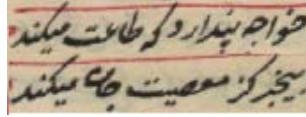 خواجه پندارد که طاعت میکند
بیخبر کز معصیت جان میکند